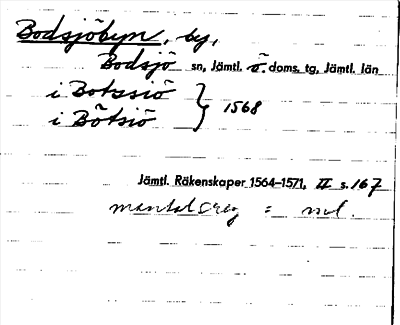 Bodsjöbyn, by,
Bodsjö sn, Jämtl. ö. doms. tg, Jämtl. län
i Botzsiö } 1568
i Bötsiö
Jämtl. Räkenskaper 1564–1571, II s. 167
mantalsreg =